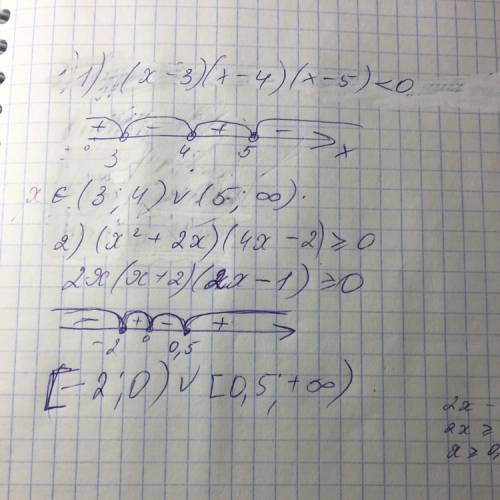 1) (x-3)(x-4)(x-5)<0
+ - + -
3 4 5 x
x ∈ (3; 4) ∨ (5; ∞).
2) (x² + 2x)(4x - 2) ≥ 0
2x(x+2)(2x-1) ≥ 0
- + - +
-2 0 0,5
[-2; 0) ∨ [0,5; +∞).
2x -
2x ≥
x ≥ 0,